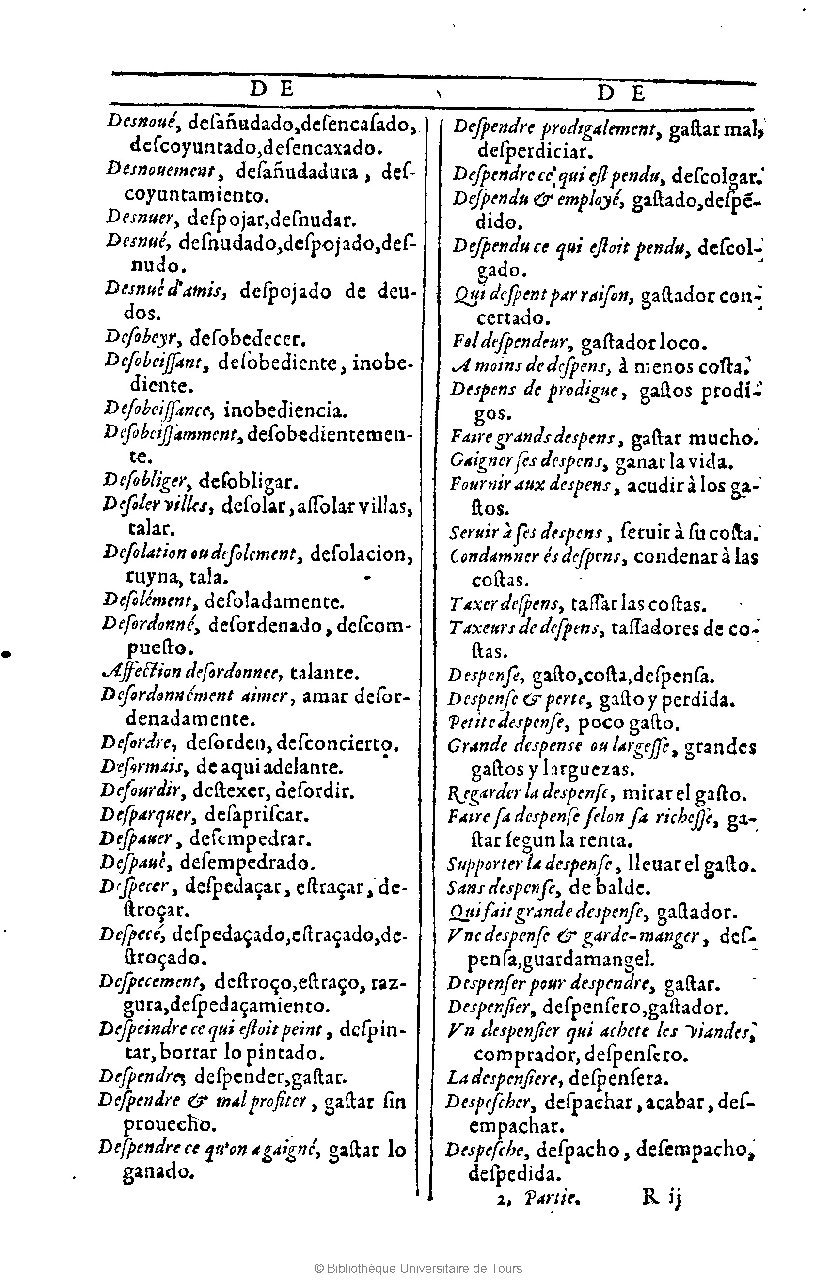 D E
Desnoué, desañudado,desencasado,
descoyuntado,desencaxado.
Desnouement, desañudadura, des-
coyuntamiento.
Desnuer, despojar,desnudar.
Desnué, desnudado,despojado,des-
nudo.
Desnué d'amis, despojado de deu-
dos.
Desobeyr, desobedecer.
Desobeissant, desobediente, inobe-
diente.
Desobeissance, inobediencia.
Desobeissamment, desobedientemen-
te.
Desobliger, desobligar.
Desoler villes, desolar, assolar villas,
talar.
Desolation ou desolement, desolacion,
ruyna, tala.
Desolément, desoladamente.
Desordonné, desordenado, descom-
puesto.
Affection desordonnee, talante.
Desordonnément aimer, amar desor-
denadamente.
Desordre, desorden, desconcierto.
Desormais, de aqui adelante.
Desourdir, destexer, desordir.
Desparquer, desapriscar.
Despauer, desempedrar.
Despaué, desempedrado.
Despecer, despedaçar, estraçar, de-
stroçar.
Despecé, despedaçado,estraçado,de-
stroçado.
Despecement, destroço,estraço, raz-
gura,despedaçamiento.
Despeindre ce qui estoit peint, despin-
tar, borrar lo pintado.
Despendre, despender,gastar.
Despendre & mal profiter, gastar sin
prouecho.
Despendre ce qu'on a gaigné, gastar lo
ganado.
D E
Despendre prodigalement, gastar mal,
desperdiciar.
Despendre ce qui est pendu, descolgar.
Despendu & employé, gastado,despẽ-
dido.
Despendu ce qui estoit pendu, descol-
gado.
Qui despent par raison, gastador con-
certado.
Fol despendeur, gastador loco.
A moins de despens, à menos costa.
Despens de prodigue, gastos prodi-
gos.
Faire grands despens, gastar mucho.
Gaigner ses despens, ganar la vida.
Fournir aux despens, acudir à los ga-
stos.
Seruir à ses despens, seruir à su costa.
Condamner és despens, condenar à las
costas.
Taxer despens, tassar las costas.
Taxeurs de despens, tassadores de co-
stas.
Despense, gasto,costa,despensa.
Despense & perte, gasto y perdida.
Petite despense, poco gasto.
Grande despense ou largesse, grandes
gastos y larguezas.
Regarder la despense, mirar el gasto.
Faire sa despense selon sa richesse, ga-
star segun la renta.
Supporter la despense, lleuar el gasto.
Sans despense, de balde.
Qui fait grande despense, gastador.
Vne despense & garde-manger, des-
pensa,guardamangel.
Despenser pour despendre, gastar.
Despensier, despensero,gastador.
Vn despensier qui achete les viandes,
comprador, despensero.
La despensiere, despensera.
Despescher, despachar, acabar, des-
empachar.
Despesche, despacho, desempacho,
despedida.
2. Partie. R ij
© Bibliothèque Universitaire de Tours